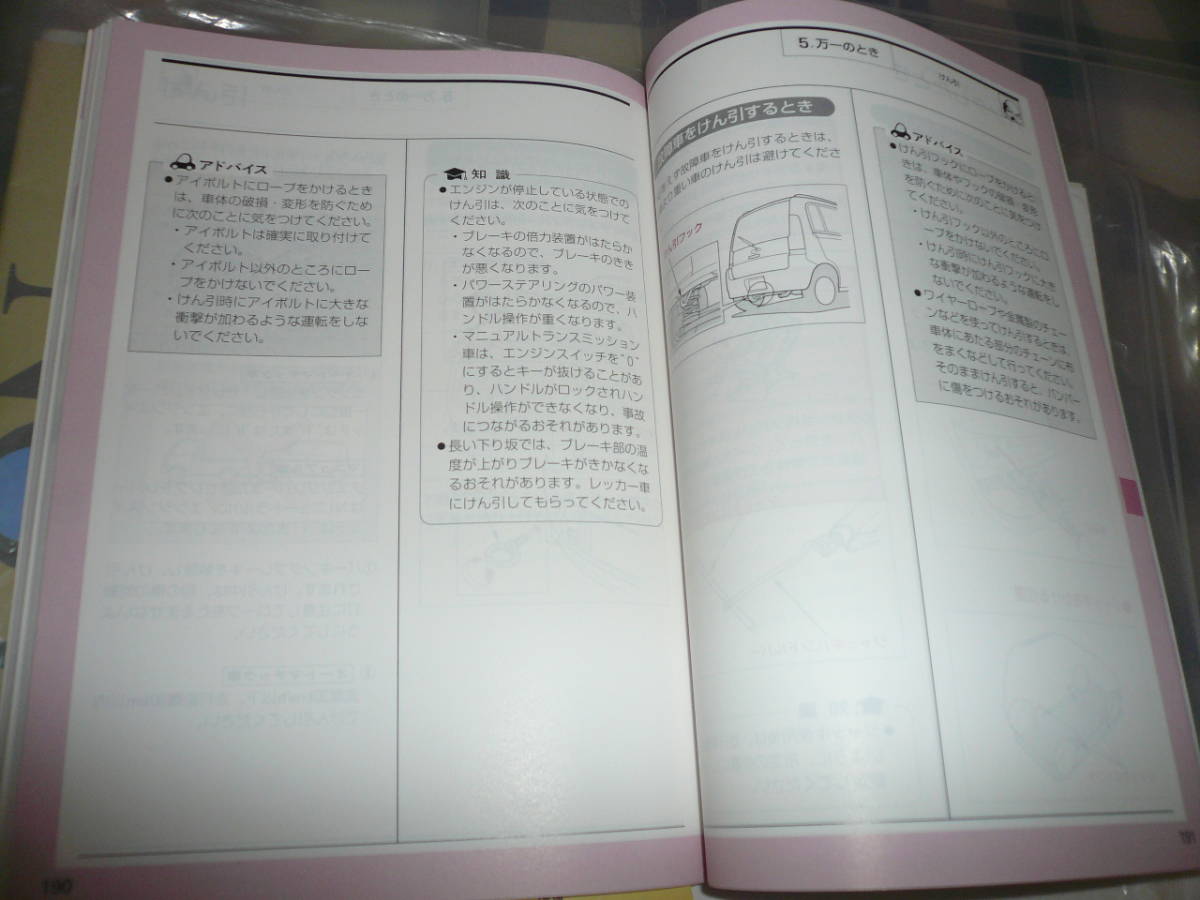 アドバイス
●アイボルトにロープをかけるとき
は、車体の破損・変形を防ぐため
に次のことに気をつけてください。
・アイボルトは確実に取り付けて
ください。
・アイボルト以外のところにロー
プをかけないでください。
・けん引時にアイボルトに大きな
衝撃が加わるような運転をしな
いでください。
知識
●エンジンが停止している状態での
けん引は、次のことに気をつけて
ください。
・ブレーキの倍力装置がはたらか
なくなるので、ブレーキのきき
が悪くなります。
・パワーステアリングのパワー装
置がはたらかなくなるので、ハ
ンドル操作が重くなります。
・マニュアルトランスミッション
車は、エンジンスイッチを"0"
にするとキーが抜けることがあ
り、ハンドルがロックされハン
ドル操作ができなくなり、事故
につながるおそれがあります。
●長い下り坂では、ブレーキ部の温
度が上がりブレーキがきかなくな
るおそれがあります。レッカー車
にけん引してもらってください。
190
5.万一のとき
けん引
故障車をけん引するとき
えず故障車をけん引するときは、
より重い車のけん引は避けてくださ
けん引フック
アドバイス
●けん引フックにロープをかけると
きは、車体やフックの破損・変形
を防ぐために次のことに気をつけ
てください。
・けん引フック以外のところにロ
ープをかけないでください。
・けん引時にけん引フックに大き
な衝撃が加わるような運転をし
ないでください。
●ワイヤーロープや金属製のチェー
ンなどを使ってけん引するときは、
車体にあたる部分のチェーンに布
をまくなどして行ってください。
そのままけん引すると、バンパー
に傷をつけるおそれがあります。
191